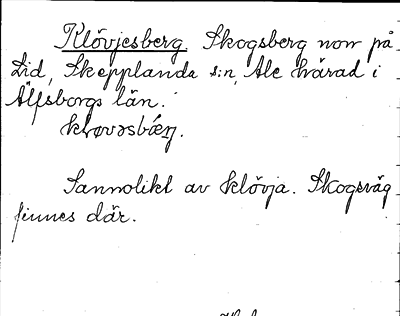 Klövjesberg Skogsberg norr på
Lid, Skepplanda s:n, Ale härad i
Älfsborgs län.
Sannolikt av klövja. Skogsväg
finnes där.